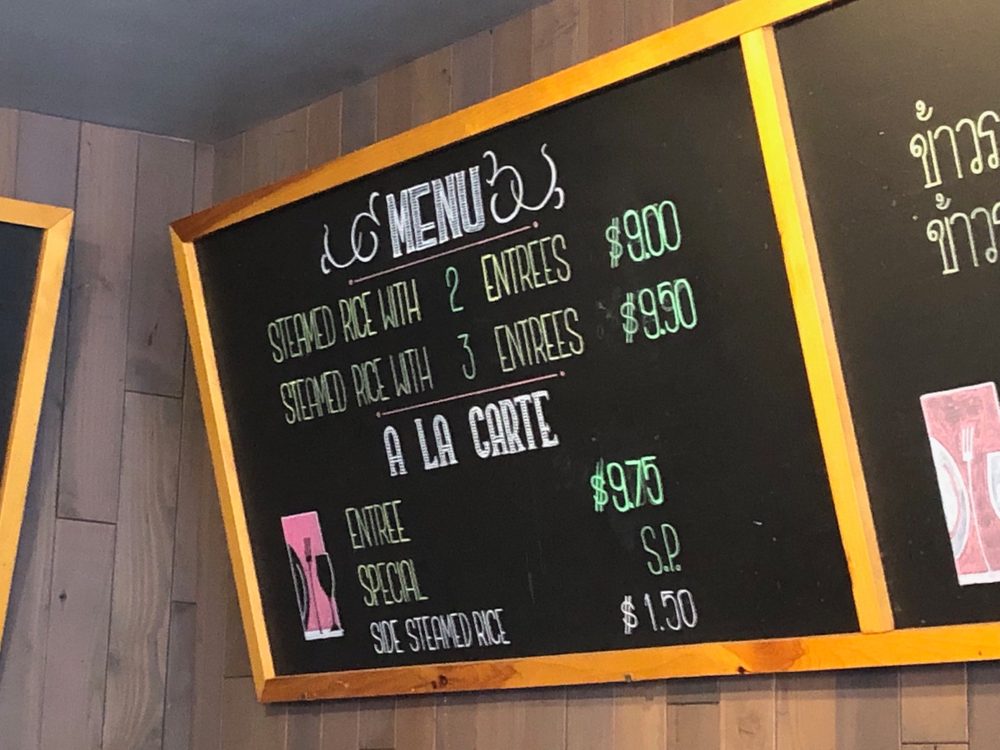 MENU
STEAMED RICE WITH 2 ENTREES $9.00
STEAMED RICE WITH 3 ENTREES $9.50
A LA CARTE
ENTREE $9.75
SPECIAL S.P.
SIDE STEAMED RICE $1.50